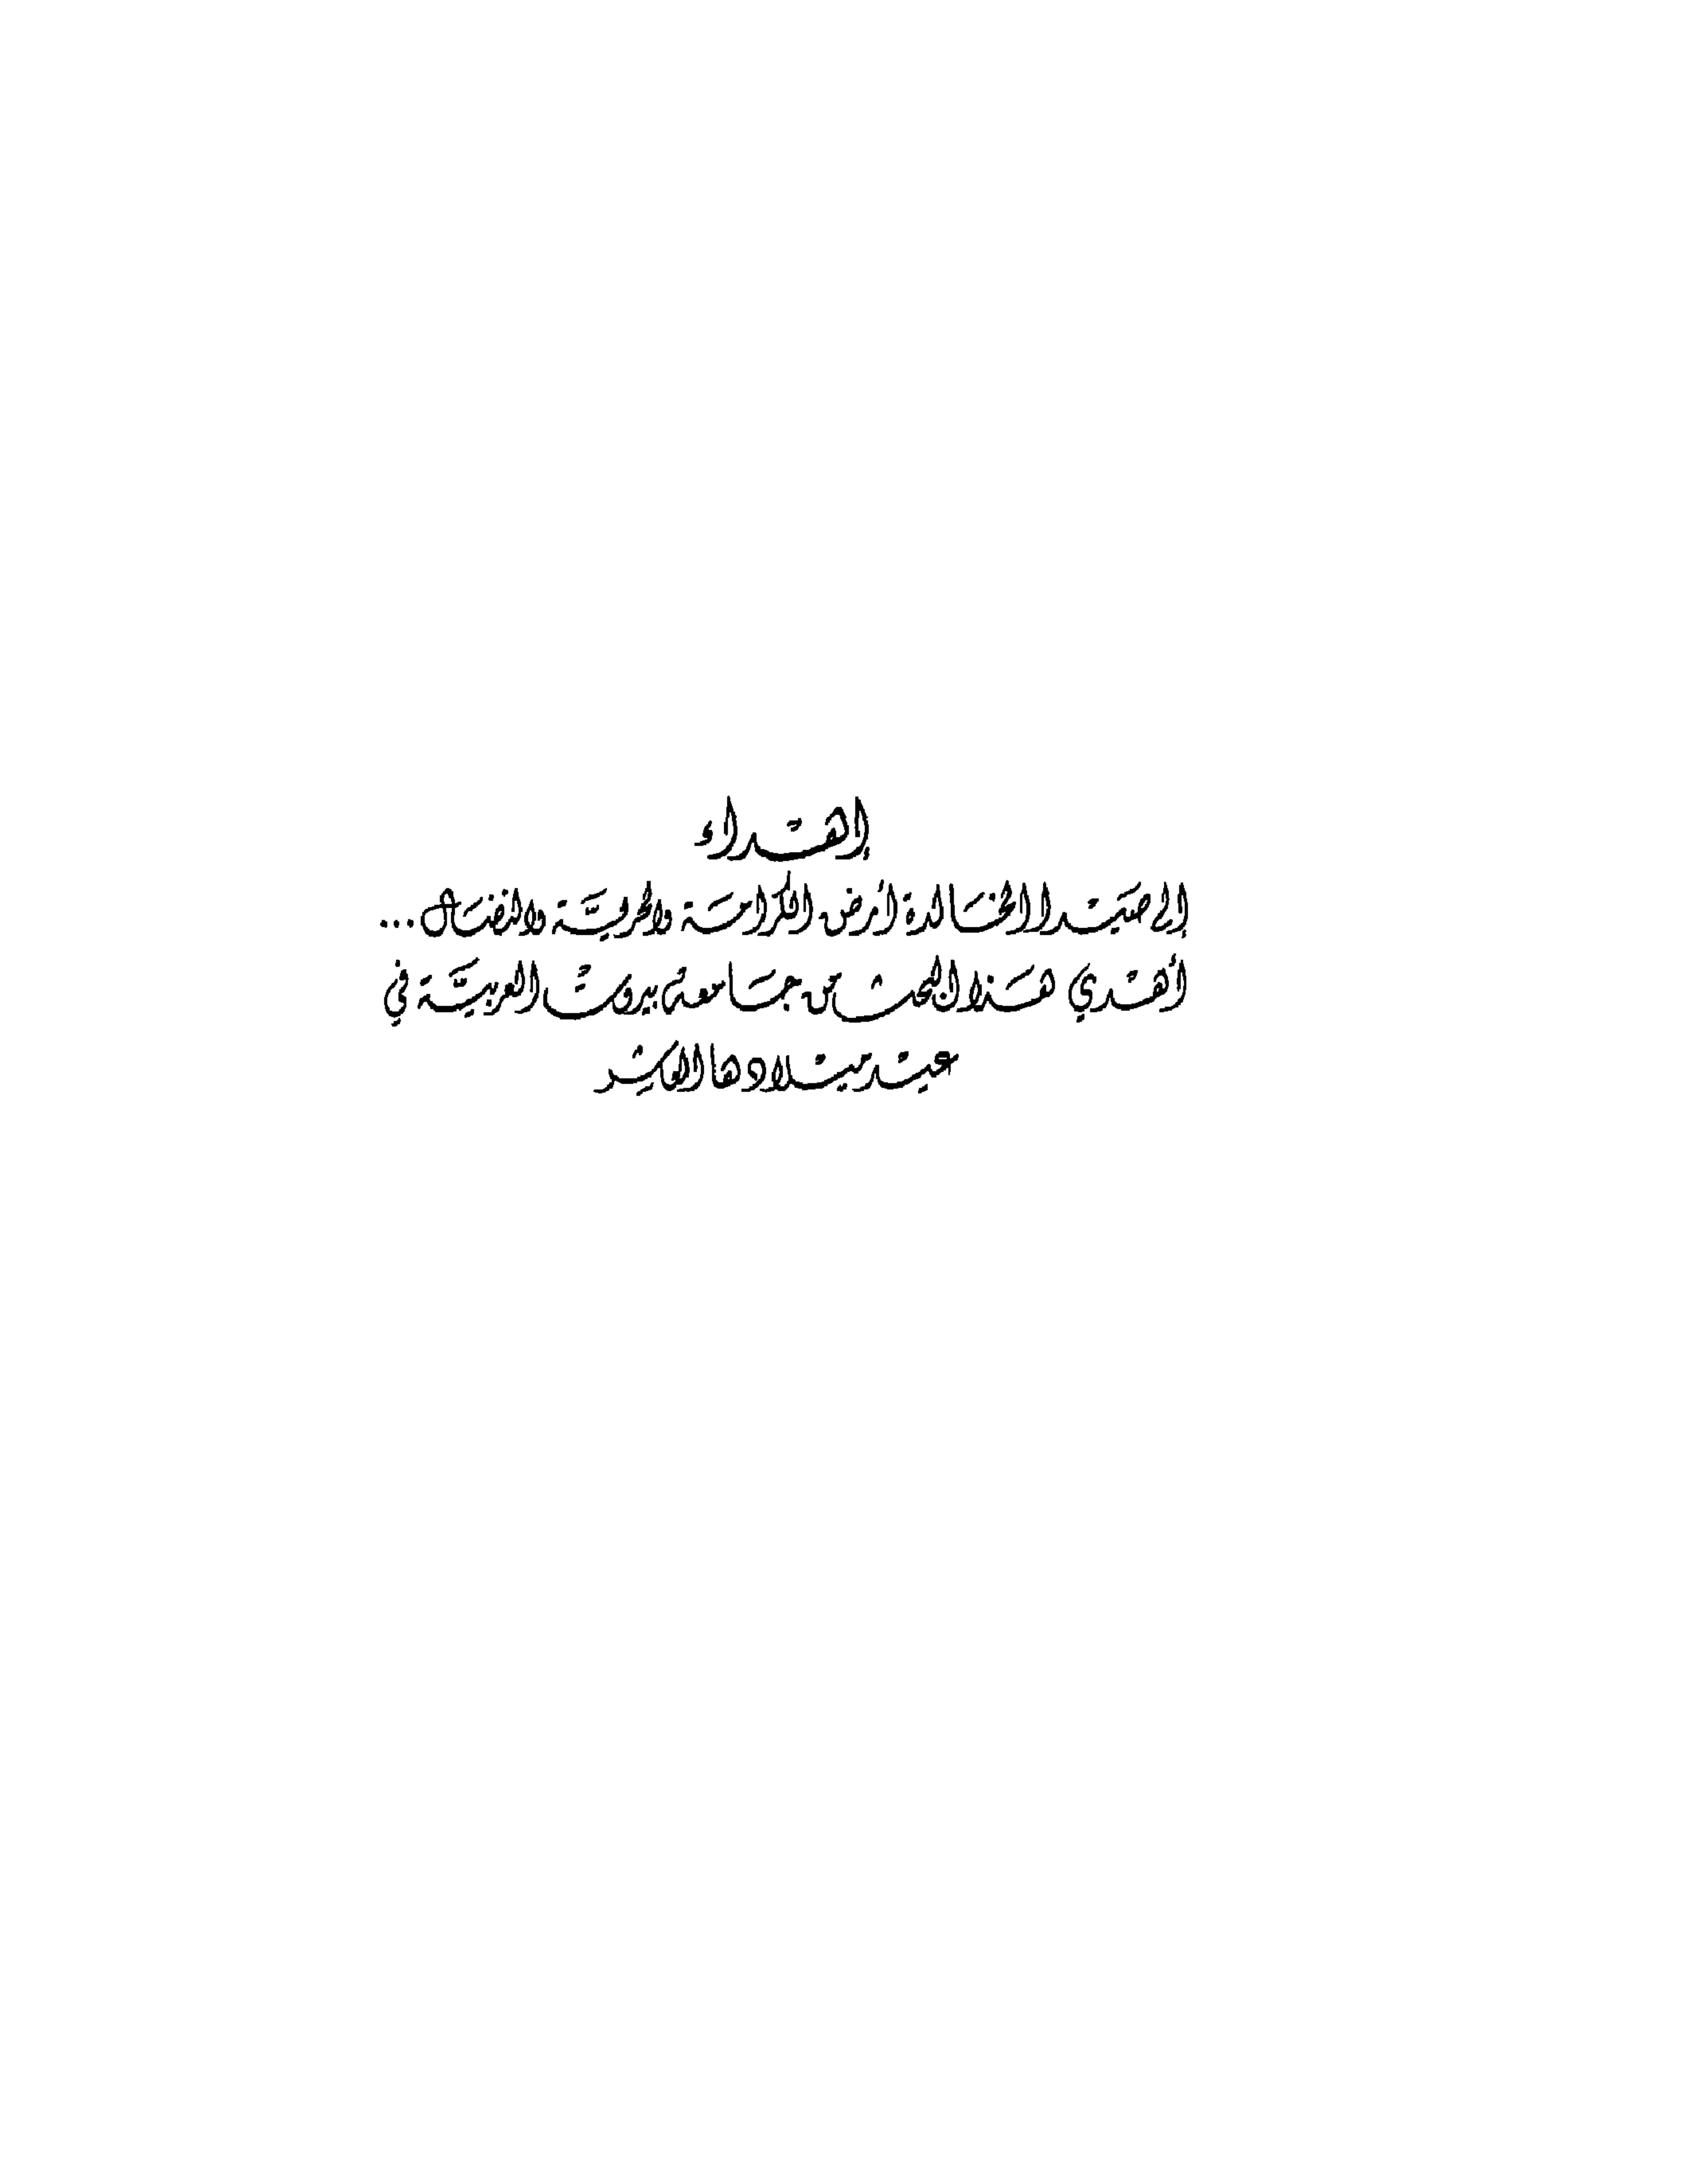 إهداء
إلى صيدا الخالدة أرض الكرامة والحرية والنضال...
أهدي هذا البحث من جامعة بيروت العربية في
عيد ميلادها العاشر